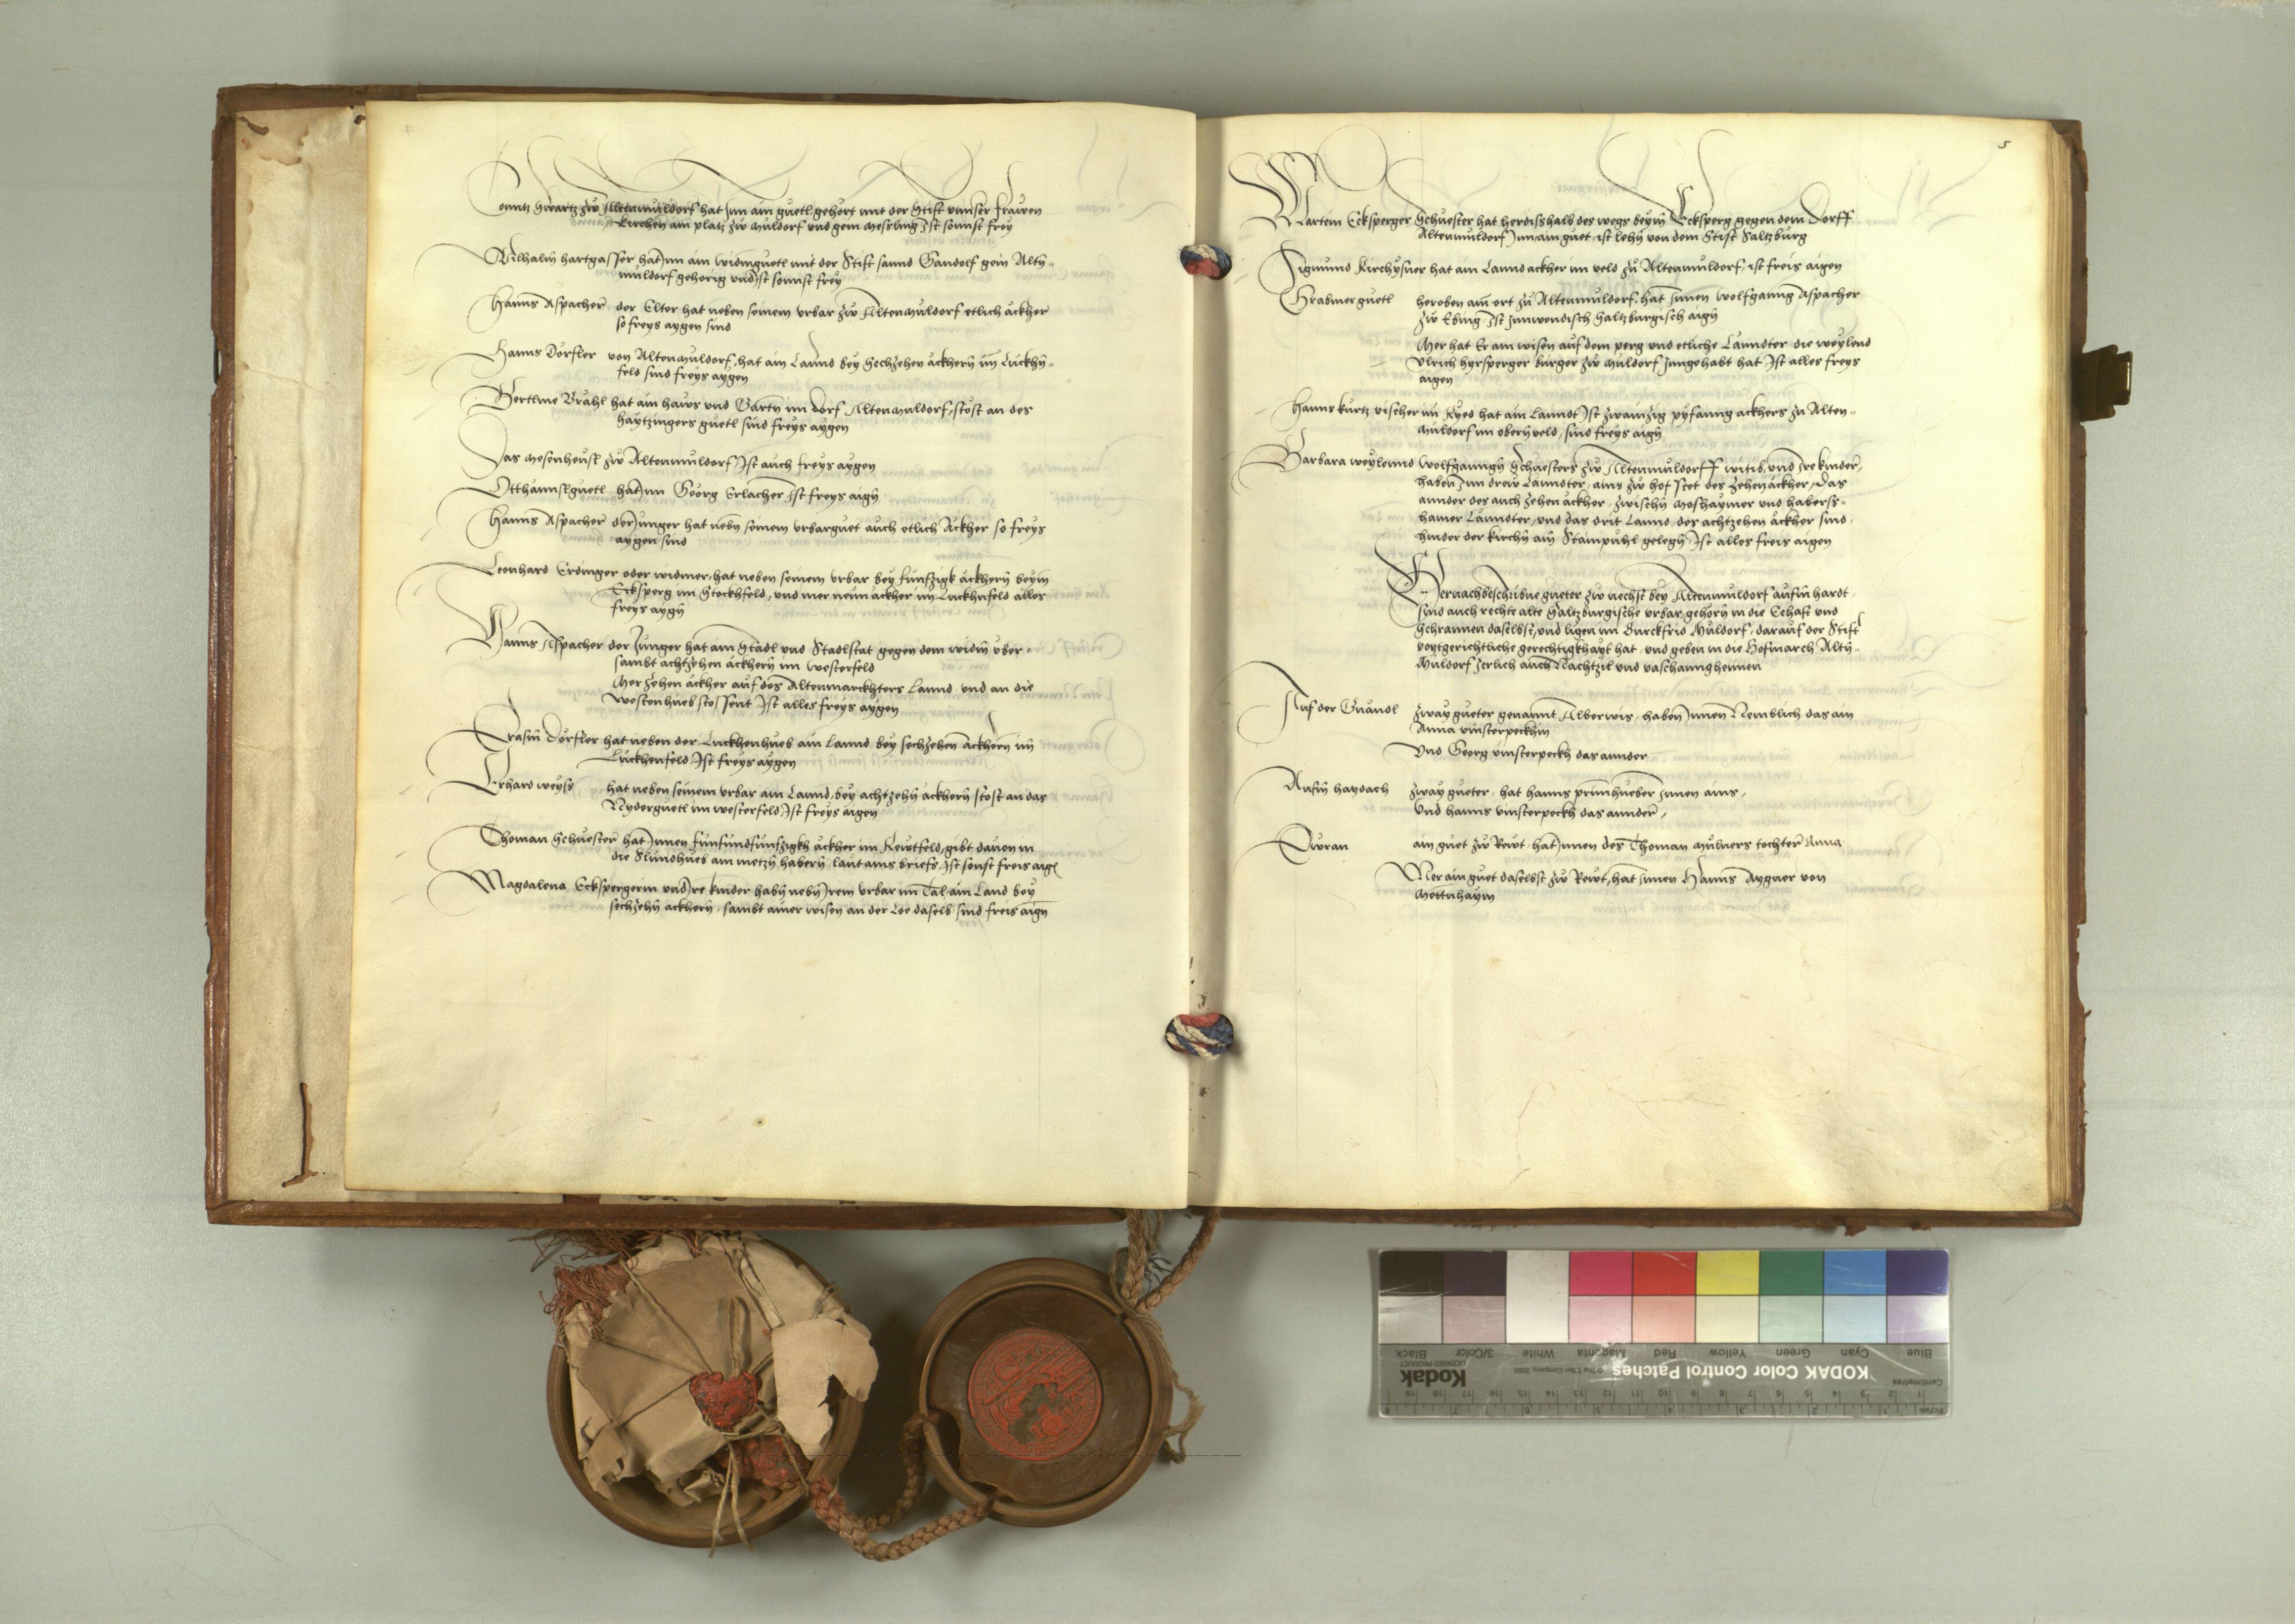 Conntz Swartz zw Altenmuldorf hat Inn ain guetl, gehort mit der Stift unnser frawen
kirchen am platz zw Muldorf und gem messling Ist sonnst frey
Wilhalm hartgasser hat Inn ain widmguetl mit der Stift sannd Gandolf gein Altn„
muldorf gehorig und Ist sonnst frey
Hanns Aspacher der Elter hat neben seinem urbar zw Altenmuldorf etlich äckher
so freys aygen sind
Hanns Dorfler von Altenmuldorf, hat ain Lannd bey Sechzehen äckhern im Luckhn„
feld sind freys aygen
Bertlme Brähl hat ain haws und Gartn im dorf Altenmuldorf, stost an des
haytzingers guetl sind freys aygen
Das mesenheusl zw Altenmuldorf Ist auch freys aygen
Otthannslguetl hat Inn Georg Erlacher ist freys aign
Hanns Aspacher der Junger hat nebn seinem urbarguet auch etlich Äckher so freys
aygen sind
Leonhard Erdinger oder widmer, hat neben seinem urbar bey funfzigk äckhern beym
Ecksperg im Stockhfeld, und mer neun äckher im Luckhnfeld alles
freys aygn
Hanns Aspacher der Junger hat ain Städl und Stadlstat gegen dem widm uber
sambt achtzehen äckhern im Westerfeld
Mer zehen äckher auf des Altenmarckhters Lannd und an die
Westenhueb stossent Ist alles freys aygen
Erasm Dorfler hat neben der Luckhenhueb ain Lannd bey sechzehen äckhern im
Luckhenfeld Ist freys aygen
Erhard weyss hat neben seinem urbar ain Lannd, bey achtzehn äckhern stost an das
Nyderguetl im westerfeld, Ist freys aigen
Thoman Schuester hat Innen funfundfunfzigkh äckher im Rewtfeld, gibt davon in
die Slundhueb ain metzn habern laut ains briefs Ist sonst freis aign
Magdalena Ekspergerin und Ire kinder habn nebn Irem urbar im Tal ain Land bey
sechzehn ackhern, sambt ainer wisen an der Loe daselb sind freis aign
5
Martein Ecksperger Schuester hat herdisshalb des wegs beym Ecksperg gegen dem Dorff
Altenmuldorf Inn ain guet ist lehn von dem Stift Saltzburg
Sigmund Kirchysner hat ain Lannd ackher im veld zu Altenmuldorf, ist freis aigen
Grabmerguetl heroben am ort zu Altenmuldorf, hat Innen Wolfganng Aspacher
zw Ebing Ist Innwendisch Saltzburgisch aign
Mer hat Er ain wisen auf dem perg und etliche Lanndter die weylend
Ulrich hyrsperger burger zw muldorf Inngehabt hat Ist alles freys
aigen
Hanns kurtz vischer im Ryed hat ain Lanndt Ist zwainzig pyfanng ackhers zu Alten„
muldorf im obern veld, sind freys aign
Barbara weylennd Wolfganngn Schuesters zw Altenmuldorff witib, und Ire kinder,
haben Inn drew Lanndter, ains zw hof stet des zehen äckher, Das
annder des auch zehen äckher, zwischn Moshaymer und haberss„
hamer Lanndter, und das drit Lannd, des achtzehen äckher sind
hinder der kirchn am Stampuhl gelegn Ist alles freis aigen
Hernachbeschribne gueter zw nechst bey Altenmuldorf aufm hardt
sind auch rechte alte Saltzburgische urbar, gehorn in die Eehaft und
Schrannen daselbst, und ligen im Burckfrid Muldorf, darauf der Stift
voytgerichtliche gerechtigkhayt hat, und geben in die Hofmarch Altn„
Muldorf Jerlich auch Nachtzil und vaschannghennen
Auf der Gnändl zway gueter genannt Alberwis, haben Innen Nemblich das ain
Anna vinsterpeckhin
Und Georg vinsterpeckh das annder
Aufm haydach zway gueter, hat hanns prinnhueber Innen ains,
Und hanns vinsterpeckh das annder,
Ewran ain guet zw Rewt, hat Innen des Thoman mulners tochter Anna
Mer ain guet daselbst zw Rewt, hat Innen Hanns Aygner von
Mettnhaym
KODAK Color Control Patches
Kodak
LICENSED PRODUCT
Blue
Cyan
Green
Yellow
Red
Magenta
White
3/Color
Black
Centimetres
Inches